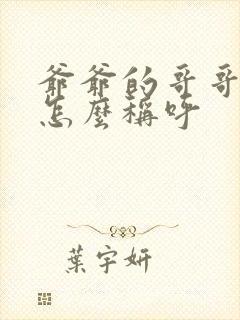 爺爺的哥哥
怎麼稱呼
葉宇妍